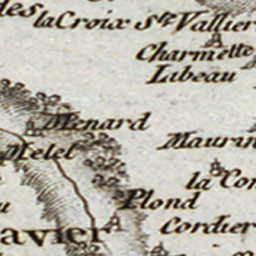 des
la Croix Ste Vallier
Charmette
Labeau
Menard
Melel
Maurin
la Con
Plond
Cordier
avier